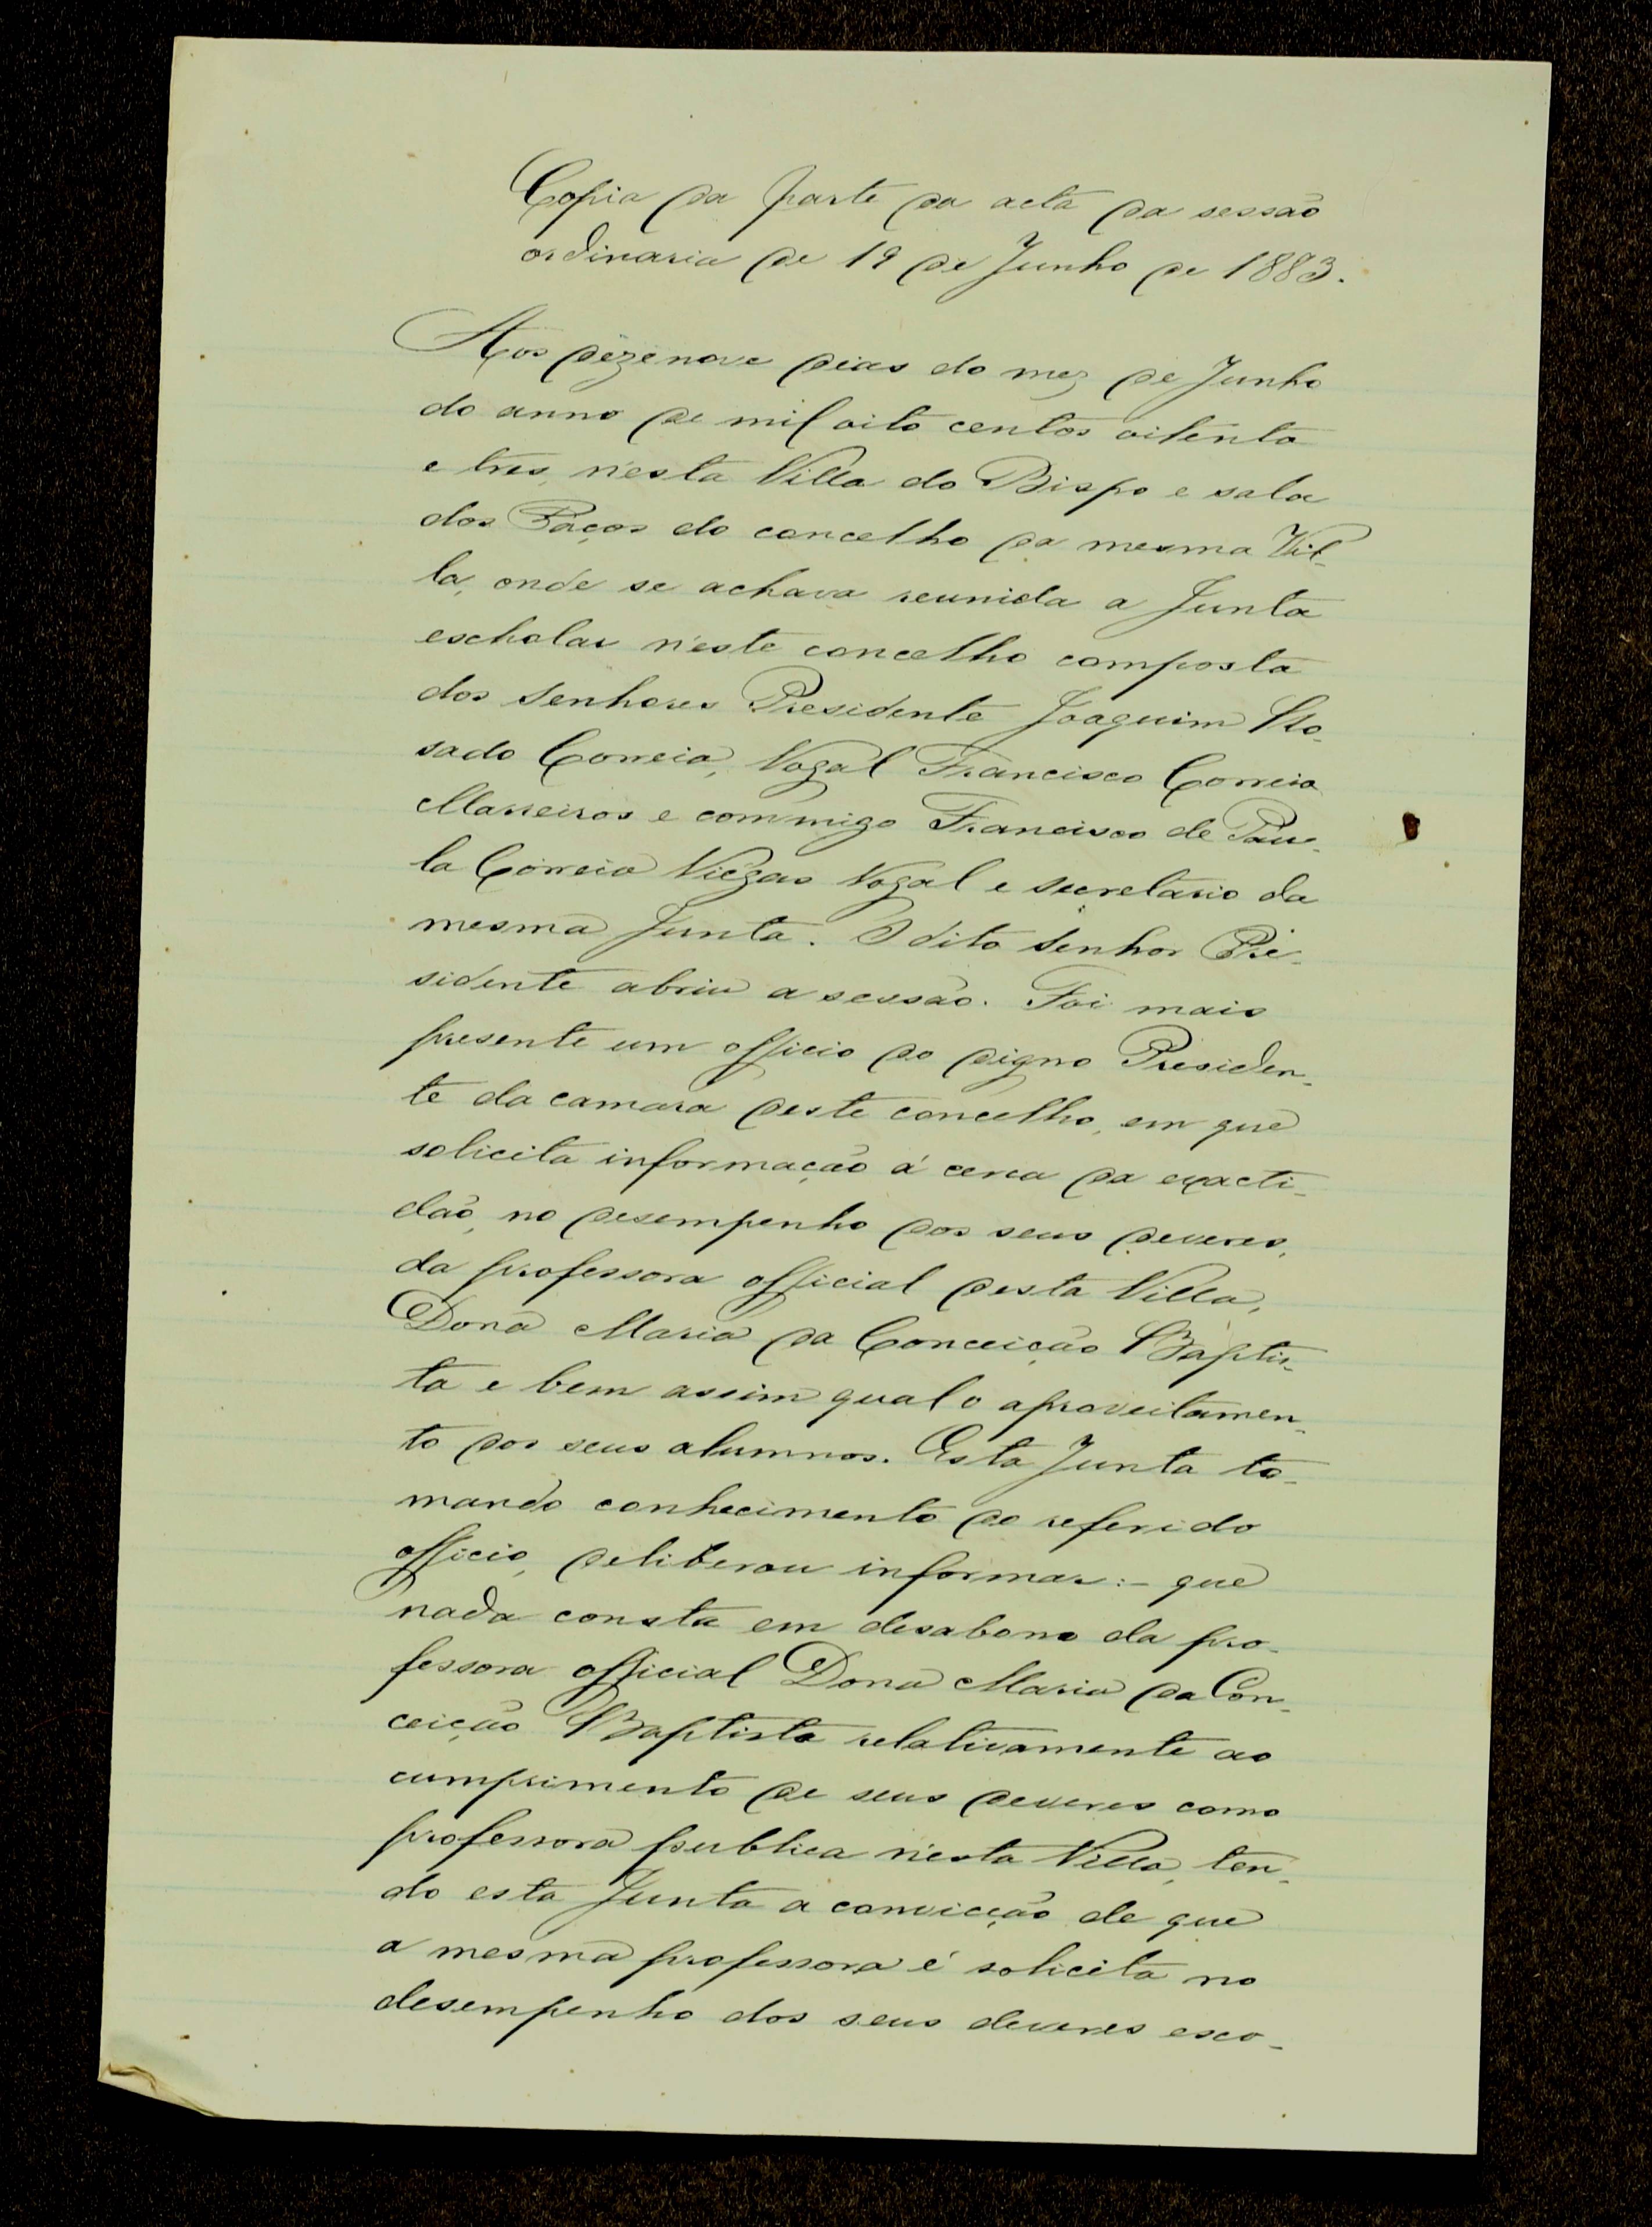 Copia da parte da acta da sessão
ordinaria de 19 de Junho de 1883.
Aos dezenove dias do mez de Junho
do anno de mil oito centos oitenta
e tres, n'esta Villa do Bispo e sala
dos Paços do concelho da mesma Vil-
la, onde se achava reunida a Junta
escholar n'este concelho composta
dos Senhores Presidente Joaquim Ro-
sado Correia, Vogal Francisco Correia
Marreiros e commigo Francisco de Pau-
la Correia Viegas Vogal e secretario da
mesma Junta. O dito Senhor Pre-
sidente abriu a sessão. Foi mais
presente um officio do digno Presiden-
te da camara deste concelho, em que
solicita informação á cerca da exacti-
dão, no desempenho dos seus deveres,
da professora official desta Villa,
Dona Maria da Conceição Baptis-
ta e bem assim qual o aproveitamen-
to dos seus alumnos. Esta Junta to-
mando conhecimento do referido
officio, deliberou informar:- que
nada consta em desabono da pro-
fessora official Dona Maria da Con-
ceição Baptista relativamente ao
cumprimento de seus deveres como
professora publica n'esta Villa, ten-
do esta Junta a convicção de que
a mesma professora é solicita no
desempenho dos seus deveres esco-